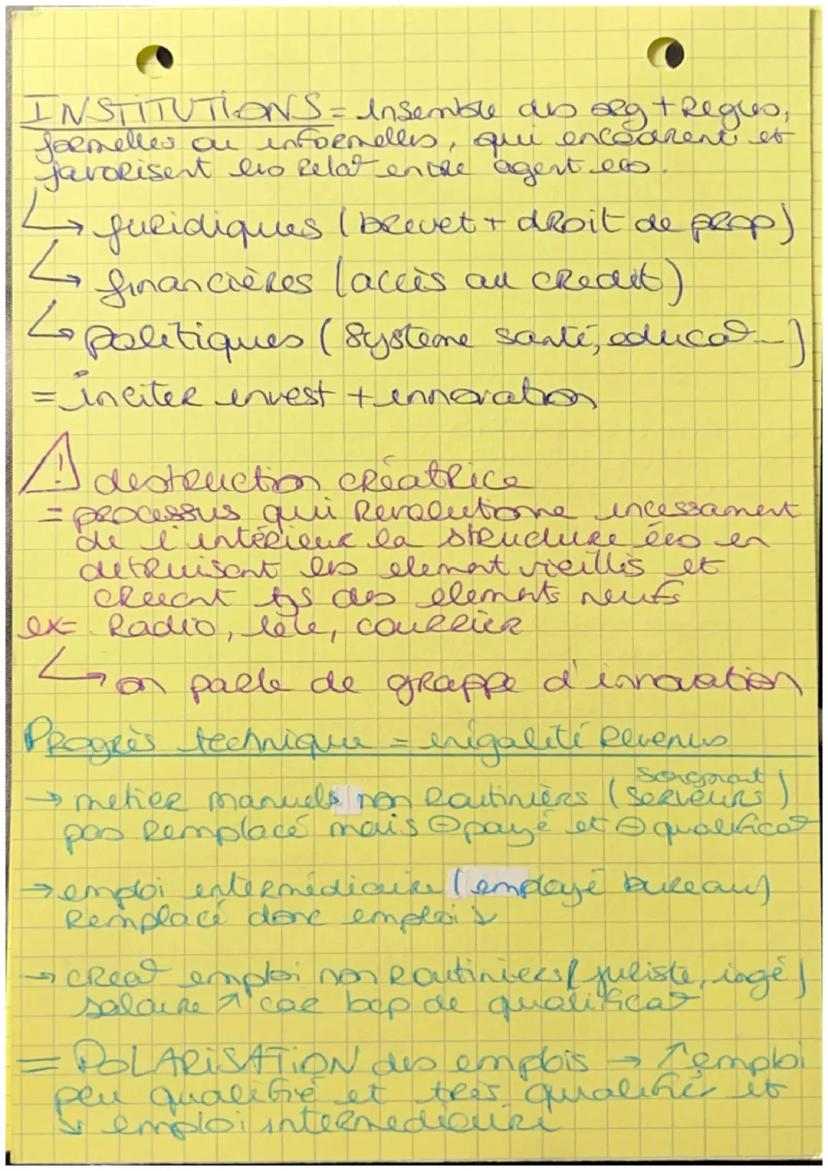 INSTITUTIONS = Ensemble des org + Regles,
formelles ou informelles, qui encadrent et
favorisent les relat° entre agent eco.
↳ juridiques (brevet + droit de prop)
↳ financières (accès au credit)
↳ politiques (Système santé, educat°...)
= inciter invest + innovation
⚠ destruction créatrice
= processus qui Revolutionne incessament
de l'intérieur la structure éco en
detruisant les element vieillis et
creant tjs des elements neufs
ex= Radio, télé, courrier
↳ on parle de grappe d'innovation
Progrès technique = inégalité Revenus
soignant
→ metier manuels non Routinièrs (serveurs)
pas Remplacé mais ⊖ payé et ⊖ qualificat°
→ emploi intermédiaire (employé bureau)
Remplacé donc emploi ↘
→ creat° emploi non Routiniers (juriste, ingé)
salaire ↗ car bcp de qualificat°
= POLARISATION des emplois → ↑ emploi
peu qualifié et très qualifié et
↘ emploi intermediaire